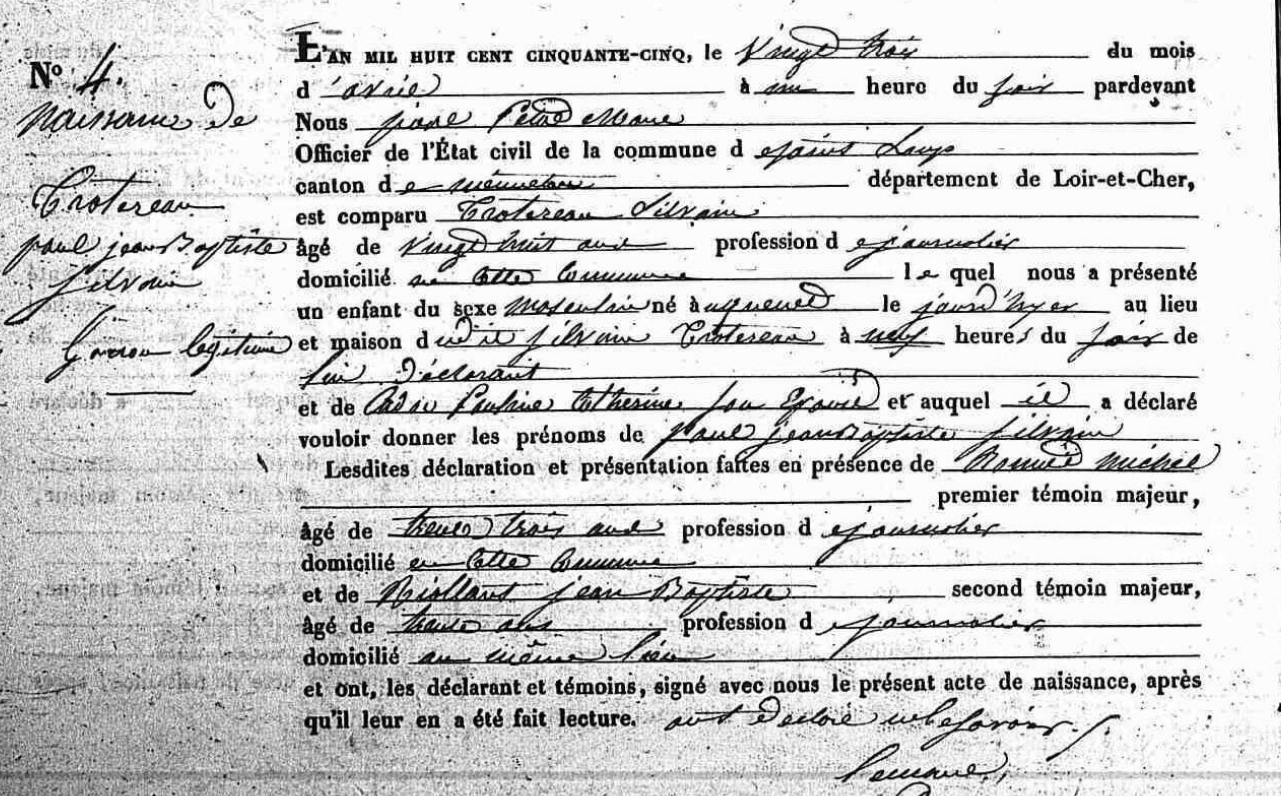 N° 4.
naissance de
Trotereau
paul jean Baptiste
silvain
Garcon légitime
L'AN MIL HUIT CENT CINQUANTE-CINQ, le Vingt trois du mois
d'avril à une heure du soir pardevant
Nous maire
Officier de l'État civil de la commune de saint Loup
canton de mennetou département de Loir-et-Cher,
est comparu Trotereau Silvain
âgé de Vingt huit ans profession de journalier
domicilié en cette Commune lequel nous a présenté
un enfant du sexe masculin né à le jour d'hyer au lieu
et maison dudit silvain Trotereau à neuf heures du soir de
lui déclarant
et de Pauline Catherine son Epouse et auquel il a déclaré
vouloir donner les prénoms de paul jean Baptiste silvain
Lesdites déclaration et présentation faites en présence de michel
premier témoin majeur,
âgé de trente trois ans profession de journalier
domicilié en cette Commune
et de Riollant jean Baptiste second témoin majeur,
âgé de trente ans profession de journalier
domicilié au même lieu
et ont, les déclarant et témoins, signé avec nous le présent acte de naissance, après
qu'il leur en a été fait lecture. ont declaré ne le savoir